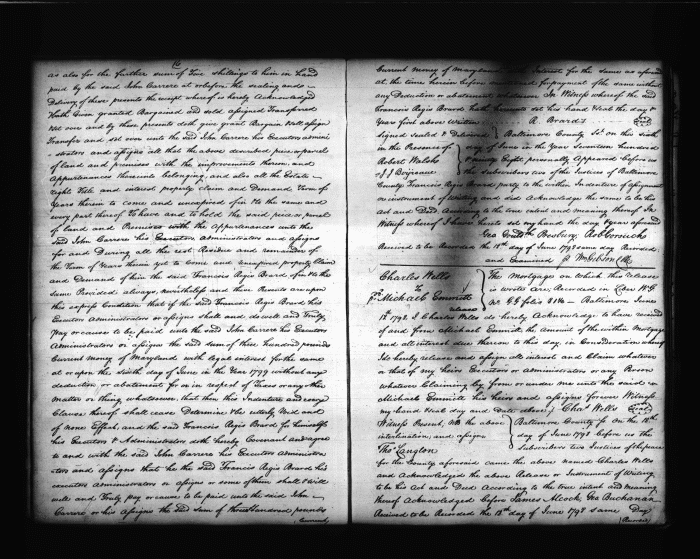 as also for the further sum of Five shillings to him in hand
paid by the said John Carrere at or before the sealing and
Delivery of these presents the receipt whereof is hereby Acknowledged
Hath Given granted Bargained and sold assigned Transferred
set over and by these presents doth give grant Bargain Sell assign
Transfer and set over unto the said John Carrere his Executors admini
strators and assigns all that the above described piece or parcel
of land and premises with the improvements thereon and
Appurtenances thereunto belonging, and also all the Estate
right Title and interest property claim and Demand Term of
Years therein to come and unexpired of in & to the same and
every part thereof To have and to hold the said piece or parcel
of land and Premises with the Appurtenances unto the
said John Carrere his Executors Administrators and assigns
for and During all the rest Residue and remainder of
the Term of Years therein yet to come and unexpired property Claim
and Demand of him the said Francis Regis Board of in & to the
same Provided always, nevertheless and these Presents are upon
this express Condition that if the said Francis Regis Board his
Executors Administrators or assigns shall and do well and Truly
Pay or cause to be paid unto the said John Carrere his Executors
Administrators or assigns the said sum of three hundred pounds
Current money of Maryland with legal interest for the same
at or upon the sixth day of June in the Year 1799 without any
deduction or abatement for or in respect of Taxes or any other
matter or thing whatsoever, that then this Indenture and every
Clause thereof shall cease Determine & be utterly Void and
of none Effect, and the said Francis Regis Board for himself
his Executors & Administrators doth hereby Covenant and agree
to and with the said John Carrere his Executors Administra
tors and assigns that he the said Francis Regis Board his
executors administrators or assigns or some of them shall & will
well and Truly Pay or cause to be paid unto the said John
Carrere or his assigns the said sum of three Hundred pounds
Current money of Maryland with Interest for the same as aforesaid
at the time herein before for payment of the same without
any Deduction or abatement whatsoever In Witness whereof the said
Francis Regis Board hath hereunto set his hand & Seal the day &
Year first above Written R Board
signed Sealed & Delivered Baltimore County Sc. on this sixth
in the Presence of day of June in the Year Seventeen hundred
Robert Walsh & ninety Eight personally Appeared before us
J J the Subscribers two of the Justices of Baltimore
County Francis Regis Board party to the within Indenture of
or instrument of Writing and did Acknowledge the same to be his
Act and Deed According to the true intent and meaning thereof In
Witness whereof I have hereto set my hand the day & year aforesaid
Geo Presbury Rob Gorsuch
Received to be Recorded the 18th day of June 1798 same day Recorded
and Examined p Wm Gibson Clk
Charles Wells
to
Michael Emmitt
release
The Mortgage on which this release
is wrote are Recorded in Liber W G
No. E E folio 314 Baltimore June
18th 1798 I Charles Wells do hereby Acknowledge to have received
of and from Michael Emmitt the Amount of the within Mortgage
and all interest due thereon to this day, in Consideration whereof
I do hereby release and assign all interest and Claim whatever
or that of my heirs Executors or administrators or any Person
whatever Claiming by from or under me unto the said
Michael Emmitt his heirs and assigns forever Witness
my hand & seal day and Date above Chas Wells Seal
Witness Present, NB the above Baltimore County Sc On the 18th
interlineation and assigns day of June 1798 before us the
Thos Langton Subscribers two Justices of the peace
for the County aforesaid came the above named Charles Wells
and Acknowledged the above Release or Instrument of Writing
to be his Act and Deed According to the true intent and meaning
thereof Acknowledged before James Alcock, Geo Buchanan
Received to be Recorded the 18th day of June 1798 same Day